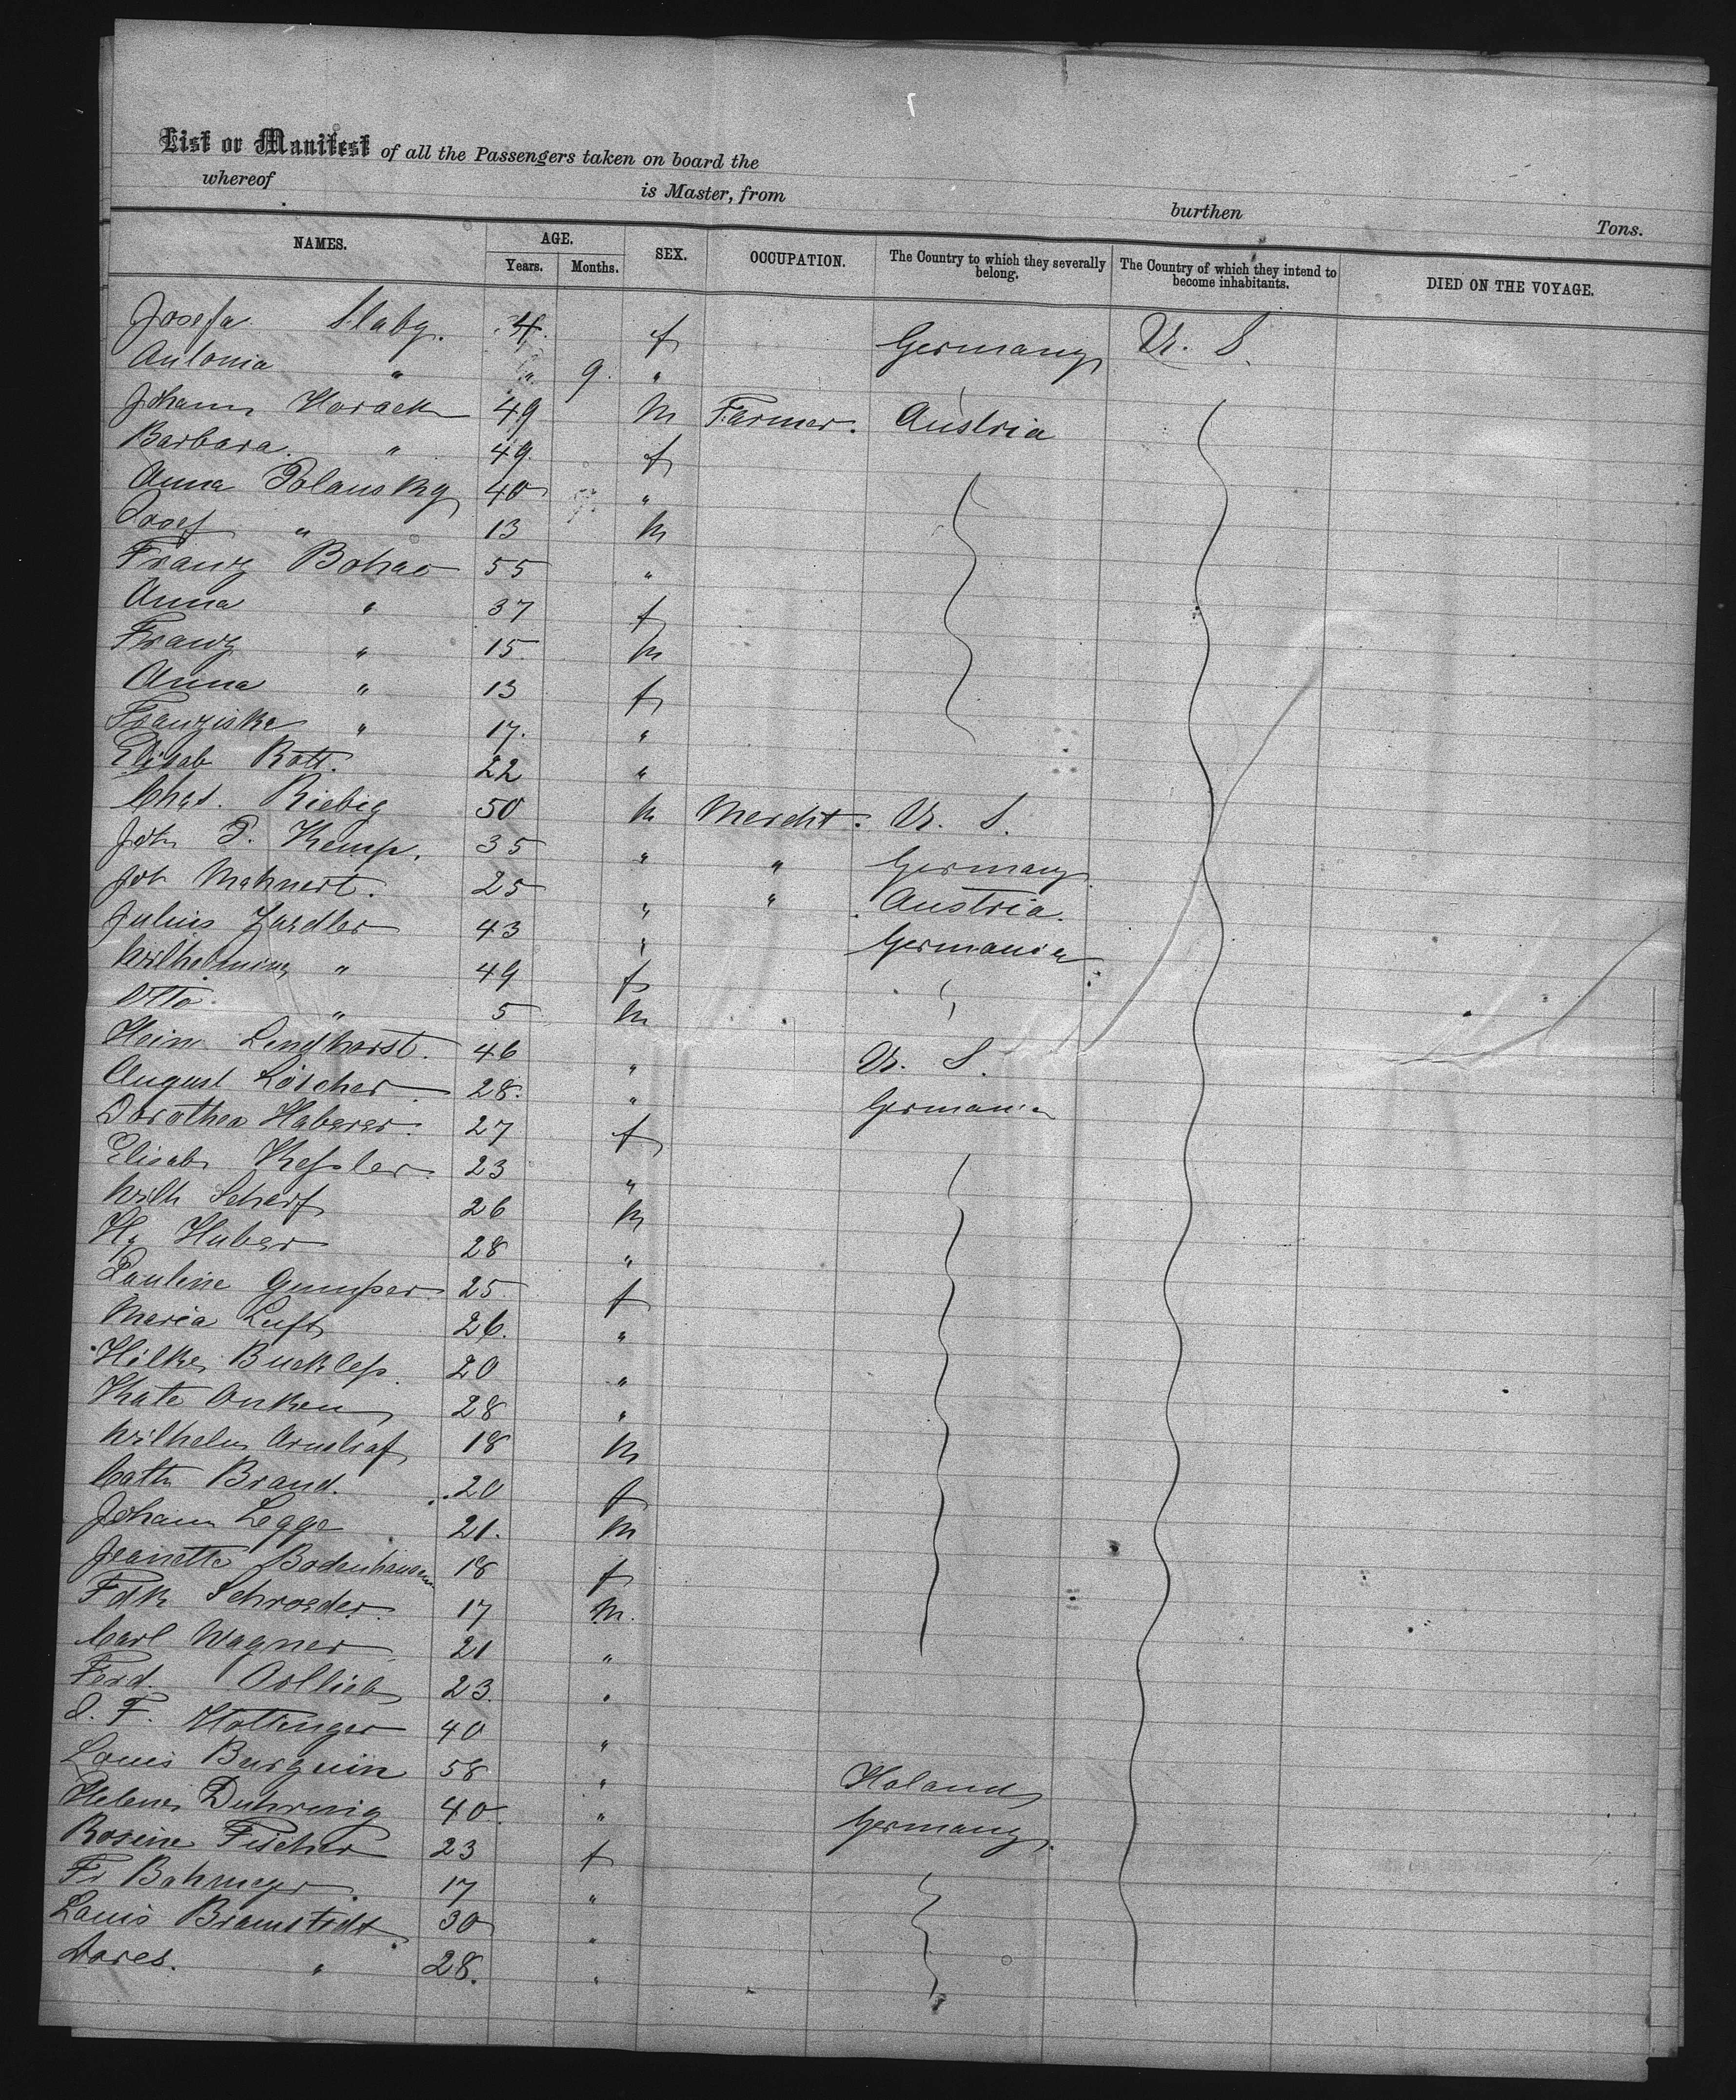 List or Manifest of all the Passengers taken on board the
whereof is Master, from burthen Tons.
NAMES. AGE. SEX. OCCUPATION. The Country to which they severally belong. The Country of which they intend to become inhabitants. DIED ON THE VOYAGE.
Years. Months.
Josefa Slaby. 4. f Germany U. S.
Antonia " " 9. "
Johann Horack 49 M Farmer. Austria
Barbara. " 49. f
Anna Polansky 40 "
Josef " 13 M
Franz Bohac 55 "
Anna " 37 f
Franz " 15 M
Anna " 13 f
Franziska " 17. "
Elisab Rott. 22 "
Chas. Riebig 50 M Mercht. U. S.
Joh P. Kemp. 35 " " Germany
Joh Mahnert. 25 " " Austria.
Julius Zardler 43 " Germania
Wilhelmina " 49 f
Otto. " 5 M
Hein Lindhorst. 46 " U. S.
August Löscher 28. " Germania
Dorothea Haberer. 27 f
Elisab Kessler 23 "
Wilh Scherf 26 M
Hy Huber 28 "
Pauline Gumper 25 f
Maria Luft 26. "
Hilke Buckless 20 "
Kate Onken 28 "
Wilhelm 18 M
Cath Brand. 20 f
Johann Legge 21. M
Jeanette Bodenhausen 18 f
Fdk Schroeder. 17 M.
Carl Wagner 21 "
Ferd. 23. "
F. Hottinger 40 "
Louis Burguin 58 " Holand
Helene Duhrnig 40. " Germany.
Rosine Fischer 23 f
Fr Bohmeyer. 17 "
Louis Bramstedt 30 "
Dores. " 28. "